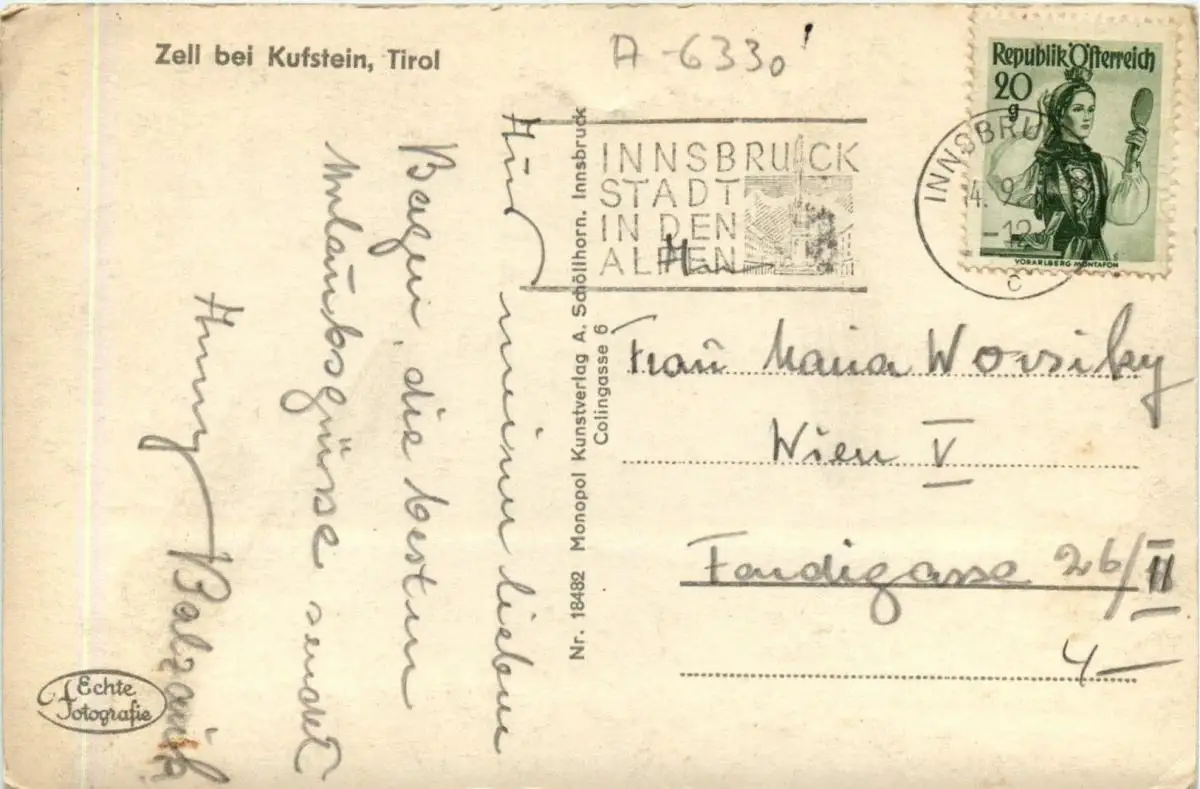 Zell bei Kufstein, Tirol
A-6330
Republik Österreich
20
g
VORARLBERG MONTAFON
INNSBRU
14. 9.
-12
c
INNSBRUCK
STADT
IN DEN
ALPEN
meine lieben
die besten
Urlaubsgrüsse sendet
Nr. 18482 Monopol Kunstverlag A. Schöllhorn. Innsbruck
Colingasse 6
Frau Maria
Wien V
26/II
4-
Echte
Fotografie